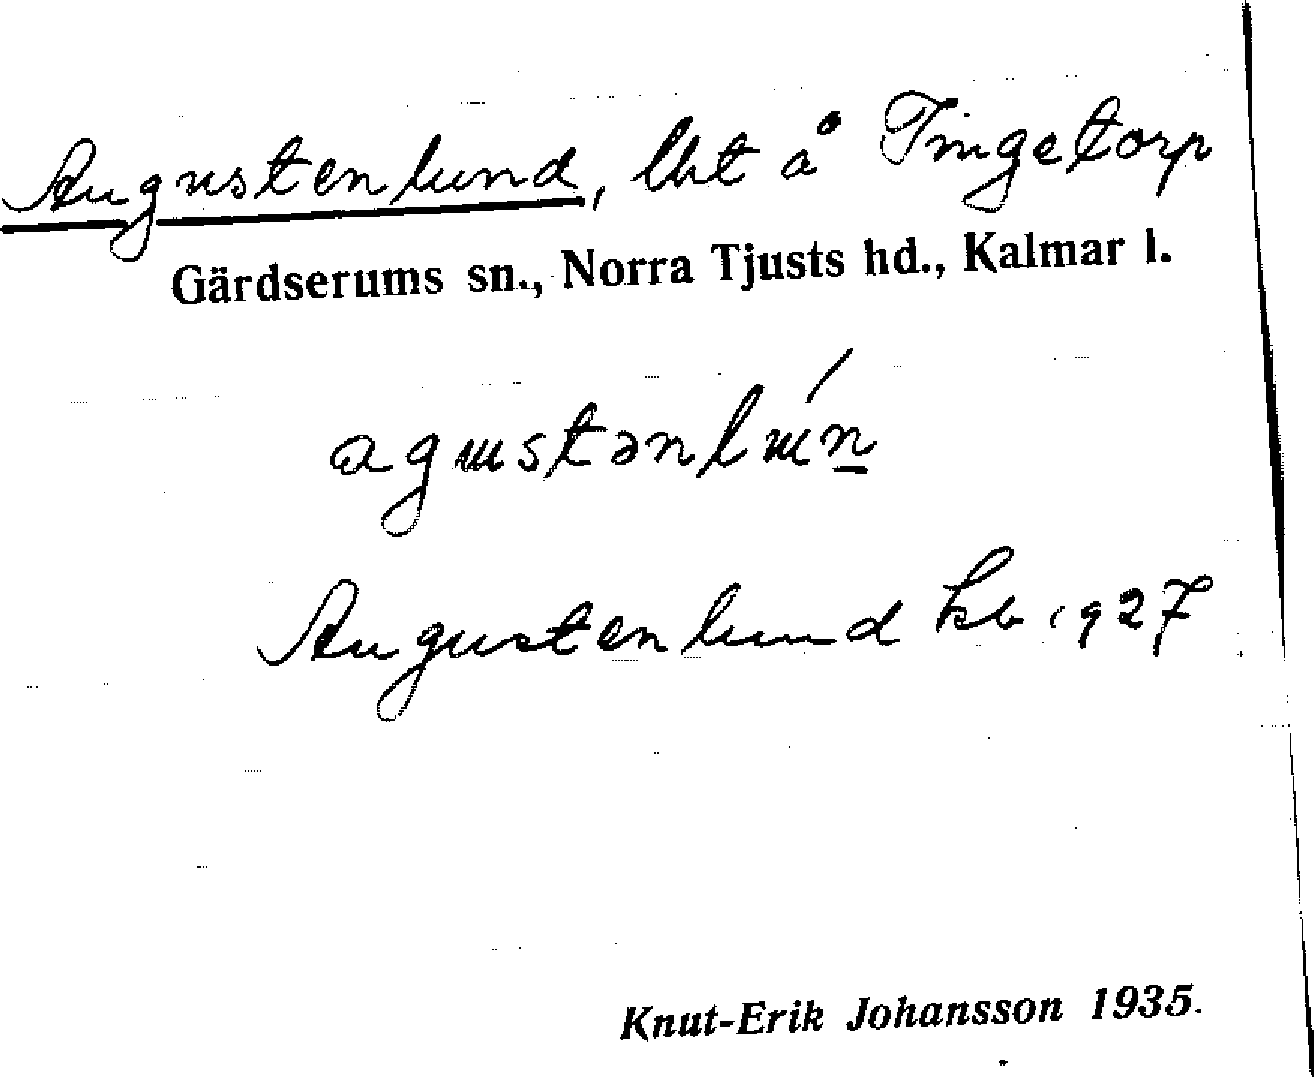 Augustenlund, lht å Tingetorp
Gärdserums sn., Norra Tjusts hd., Kalmar l.
agustənlún
Augustenlund kb 1927
Knut-Erik Johansson 1935.